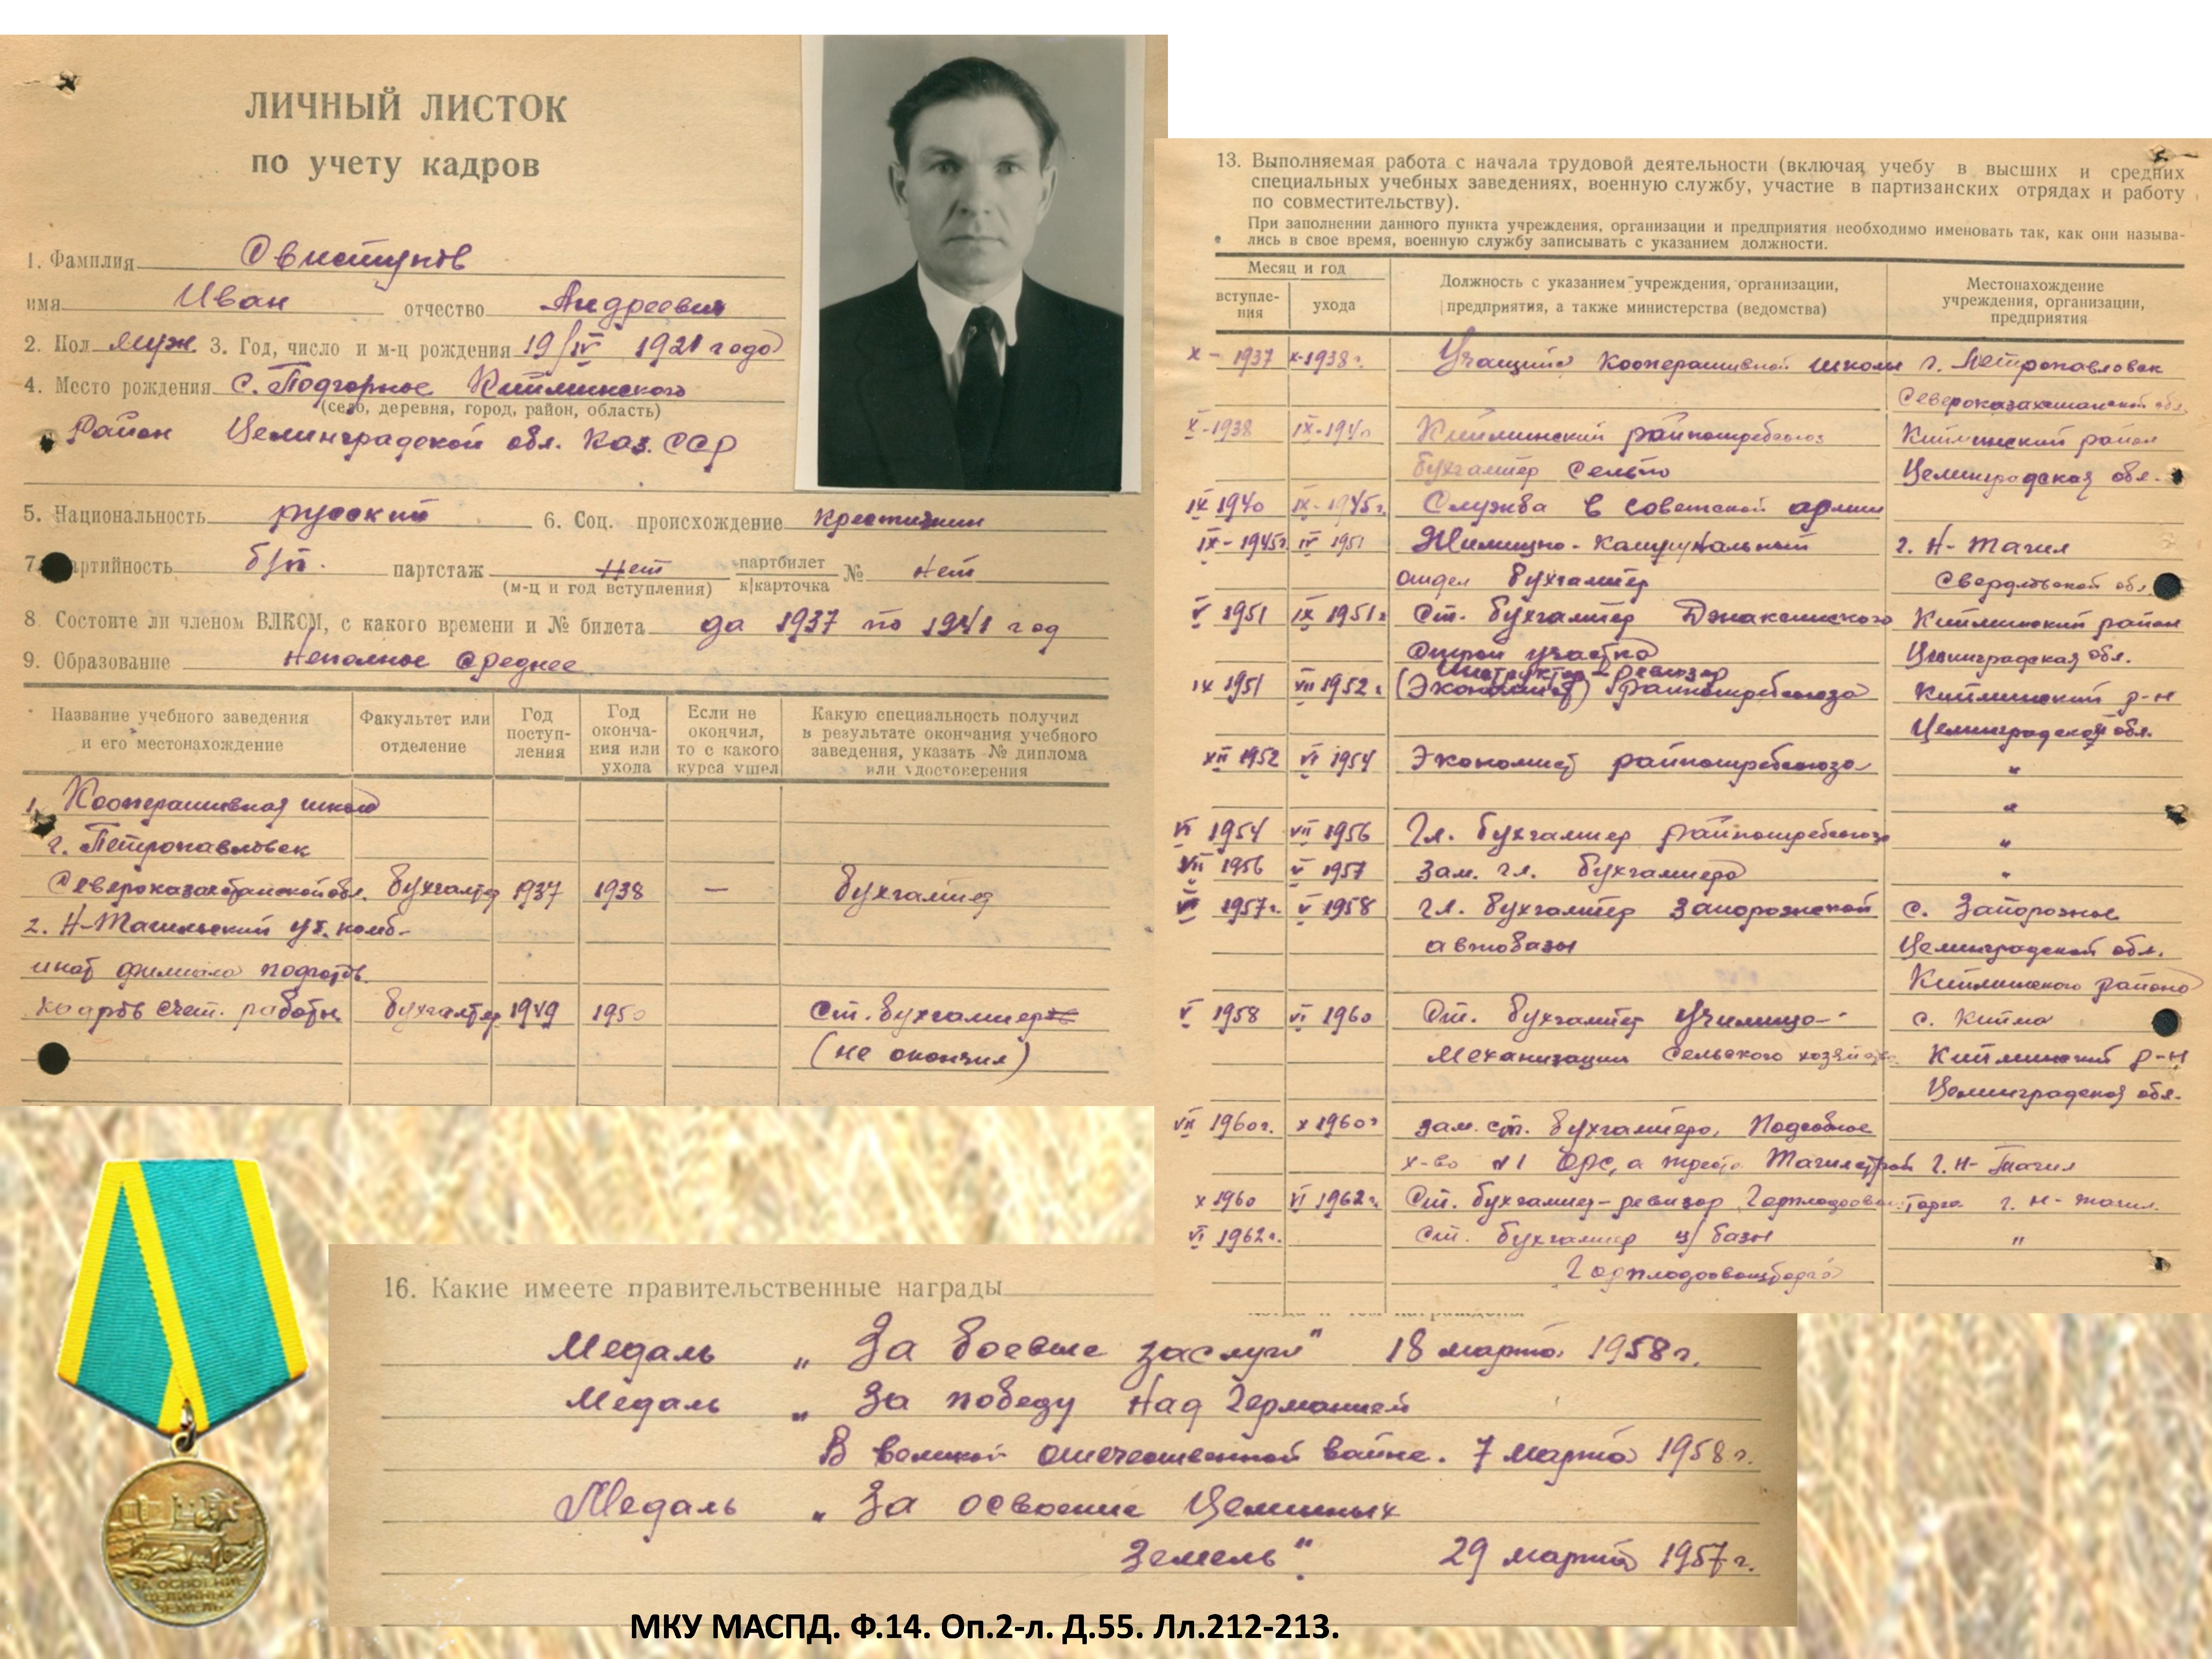 ЛИЧНЫЙ ЛИСТОК
по учету кадров
1. Фамилия Свистунов
имя Иван отчество Андреевич
2. Пол муж. 3. Год, число и м-ц рождения 19/IV 1921 года
4. Место рождения с. Подгорное Кийминского
(село, деревня, город, район, область)
Район Целинградской обл. Каз. ССР
5. Национальность русский 6. Соц. происхождение крестьянин
7. Партийность б/п. партстаж нет партбилет к/карточка № нет
(м-ц и год вступления)
8. Состоите ли членом ВЛКСМ, с какого времени и № билета да 1937 по 1941 год
9. Образование неполное среднее
Название учебного заведения и его местонахождение
Факультет или отделение
Год поступления
Год окончания или ухода
Если не окончил, то с какого курса ушел
Какую специальность получил в результате окончания учебного заведения, указать № диплома или удостоверения
1. Кооперативная школа
г. Петропавловск
Североказахстанской обл. бухгалтер 1937 1938 — бухгалтер
2. Н-Тагильский уч. комб-
инат филиала подготов.
кадров счет. работн. бухгалтер 1949 1950 Ст. бухгалтер
(не окончил)
13. Выполняемая работа с начала трудовой деятельности (включая учебу в высших и средних
специальных учебных заведениях, военную службу, участие в партизанских отрядах и работу
по совместительству).
При заполнении данного пункта учреждения, организации и предприятия необходимо именовать так, как они называ-
лись в свое время, военную службу записывать с указанием должности.
Месяц и год
вступле-
ния
ухода
Должность с указанием учреждения, организации,
предприятия, а также министерства (ведомства)
Местонахождение
учреждения, организации,
предприятия
X - 1937 X-1938 г. Учащийся Кооперативной школы г. Петропавловск
Североказахстанской обл.
X-1938 IX-1940 Кийминский райпотребсоюз Кийминский район
бухгалтер Сельпо Целинградская обл.
IX 1940 IX-1945 г. Служба в советской армии
IX-1945 г. IV 1951 Жилищно-коммунальный г. Н-Тагил
отдел бухгалтер Свердловской обл.
V 1951 IX 1951 г. Ст. бухгалтер Джаксинского Кийминский район
Строй участка Целинградская обл.
Инструктор-ревизор
IX 1951 VII 1952 г. (Экономист) райпотребсоюза Кийминский р-н
Целинградской обл.
XII 1952 VI 1954 Экономист райпотребсоюза "
"
VI 1954 VII 1956 Гл. бухгалтер райпотребсоюза "
VII 1956 V 1957 Зам. гл. бухгалтера "
1957 г. V 1958 гл. бухгалтер Запорожской с. Запорожное
автобазы Целинградской обл.
Кийминского района
V 1958 VI 1960 Ст. бухгалтер училища с. Кийма
механизации сельского хозяйства Кийминский р-н
Целинградской обл.
VII 1960 г. X 1960 г. зам. ст. бухгалтера, Подсобное
х-во №1 ОРС, а треста Тагилстрой г. Н-Тагил
X 1960 VI 1962 г. Ст. бухгалтер-ревизор Горплодоовощторга г. Н-Тагил.
VI 1962 г. ст. бухгалтер ц/базы "
Горплодоовощторга
16. Какие имеете правительственные награды
Медаль „За боевые заслуги" 18 марта 1958 г.
Медаль „За победу над Германией
В великой отечественной войне. 7 марта 1958 г.
Медаль „За освоение Целинных
Земель". 29 марта 1957 г.
ЗА ОСВОЕНИЕ
ЦЕЛИННЫХ
ЗЕМЕЛЬ
МКУ МАСПД. Ф.14. Оп.2-л. Д.55. Лл.212-213.